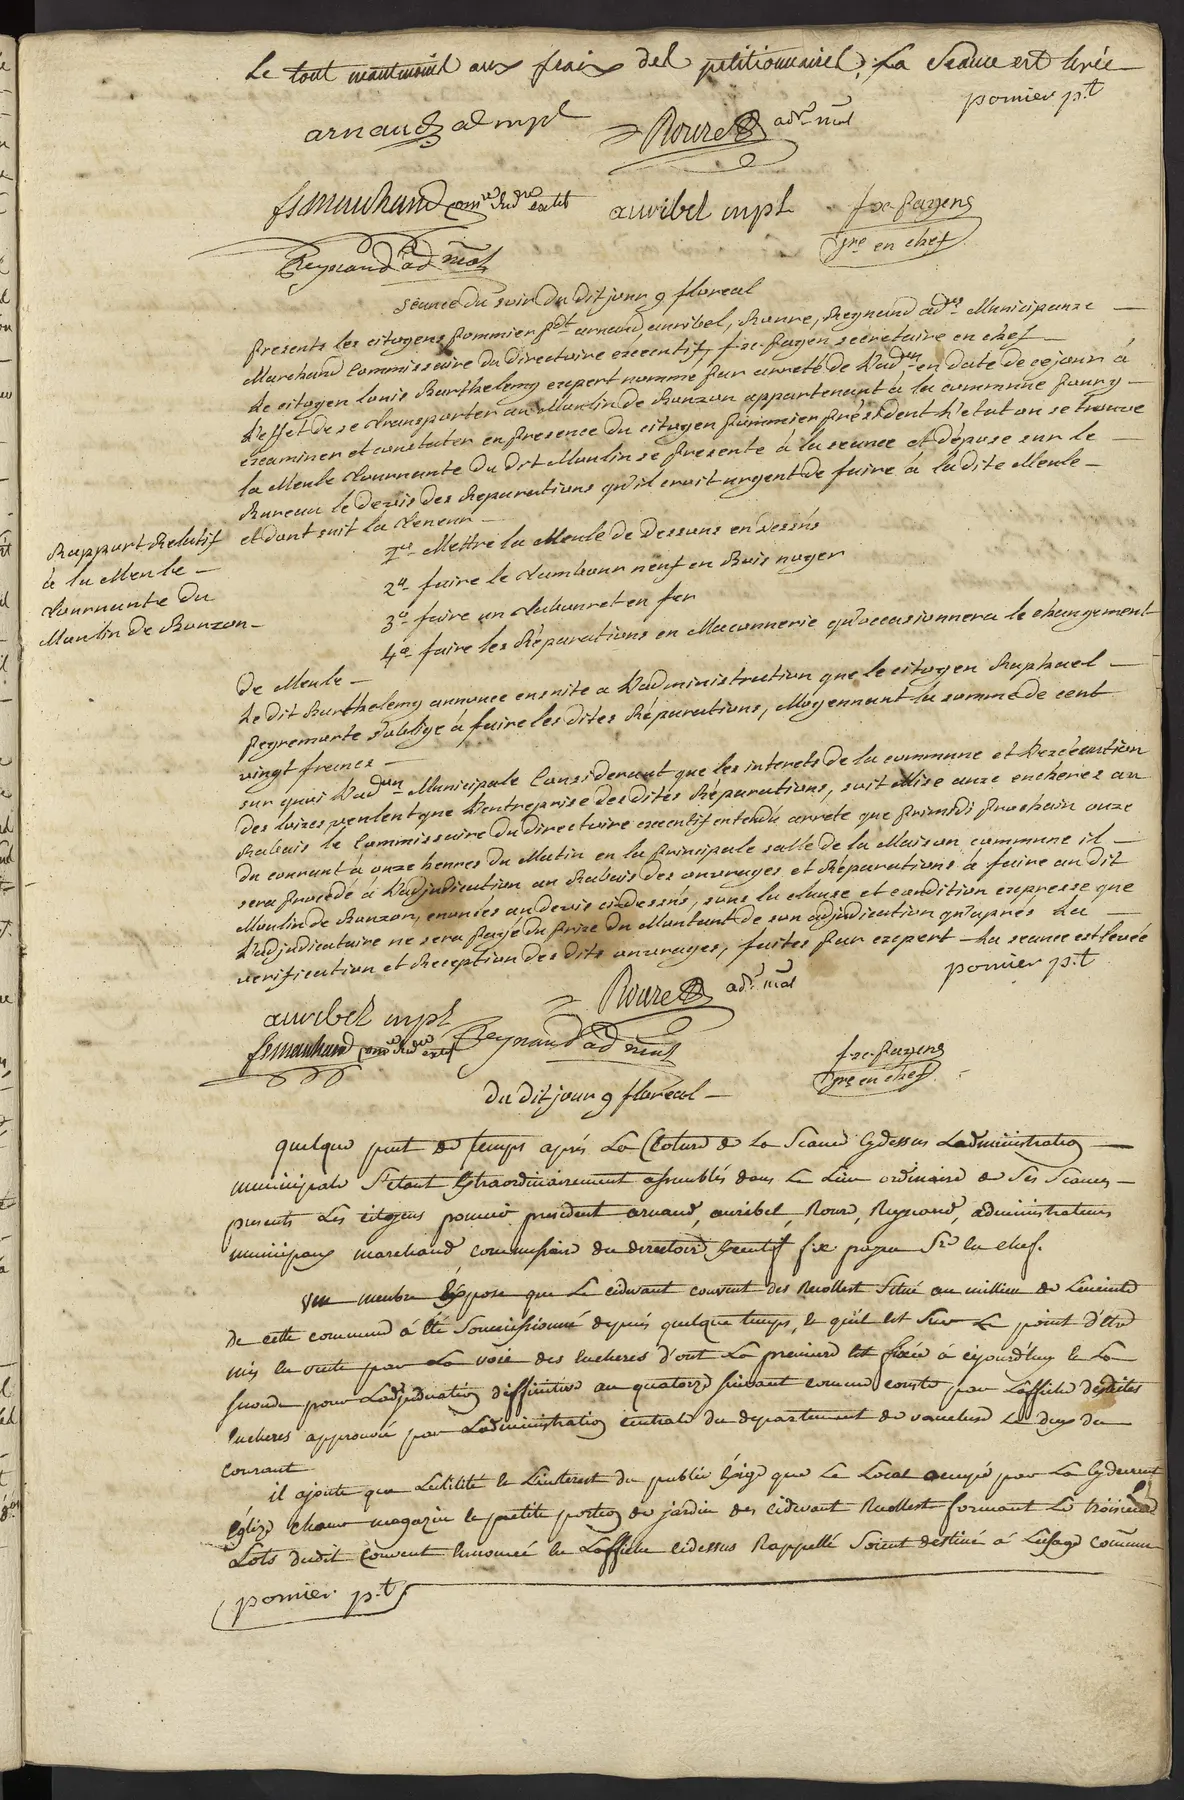 Le tout neantmoins aux fraix des petitionnaires, La Seance est levée
pomier p.t
arnaud ad mpl
Roure adr. mal
fs marchand comre du dre exetif
auribel mpl
f-x-payens
gre en chef
Reynaud ad mal
Séance du soir du dit jour 9 floreal
presents les citoyens pommier pdt arnaud, auribel, Roure, Reynaud adrs Municipaux
Marchand Commissaire du directoire éxécutif, f-x-payen secretaire en chef
le citoyen louis Barthelemy expert nommé par arreté de l'adon en date de ce jour à
l'effet de se transporter au Moulin de Bonzon appartenant à la commune pour y
éxaminer et constater en presence du citoyen pommier président l'etat ou se trouve
la Meule tournante du dit Moulin se presente à la seance et dépose sur le
Bureau le devis des Reparations qu'il croit urgent de faire à la dite Meule
et dont suit la teneur
Rapport Relatif
à la Meule
tournante du
Moulin de Bonzon
1o Mettre la Meule de dessous en dessus
2o faire le tambour neuf en Bois noyer
3o faire un tabouret en fer
4o faire les Réparations en Maconnerie qu'occasionnera le changement
de Meule
le dit Barthelemy annonce ensuite a l'administration que le citoyen Raphael
peyremorte s'oblige à faire les dites Réparations, Moyennant la somme de cent
vingt francs
sur quoi l'adon Municipale Considerant que les interets de la commune et l'exécution
des loix veulent que l'entreprise des dites Réparations, soit Mise aux encheres au
Rabais le Commissaire du directoire executif entendu arrete que primidi prochain onze
du courant à onze heures du Matin en la principale salle de la Maison commune il
sera procédé à l'adjudication au Rabais des ouvrages et Réparations à faire au dit
Moulin de Bonzon, enoncés au devis ci dessus, sous la clause et condition expresse que
l'adjudicataire ne sera payé du prix du Montant de son adjudication qu'aprés la
verification et Reception des dits ouvrages, faites par expert - La seance est levée
pomier p.t
Roure adr. mal
auribel mpl
fs marchand comre du dre exetif
Reynaud ad mal
f-x-payens
gre en chef
du dit jour 9 floréal
quelque peut de temps après La Cloture de La Seance Cydessus Ladministration
municipale S'etant Extraordinairement assemblés dans Le Lieu ordinaire de Ses Seances
presents Les citoyens pomier president arnaud, auribel, Roure, Reynaud, administrateurs
municipaux marchand commissaire du directoire Executif f-x payen Sre en chef.
Un membre Expose que Le cidevant couvent des Recollets Situé au millieu de Lenceinte
de cette commune à été Soumissionné depuis quelque temps, et qu'il est Sur Le point d'être
mis en vente par La voie des Encheres d'ont La premiere Est fixée à ejourd'huy et La
Seconde pour Ladjudication deffinitive au quatorze suivant comme conste par Laffiche desdites
Encheres approuvée par Ladministration centrale du departement de vaucluse Le deux du
courant
il ajoute que Lutilité et Linterest du public Exige que Le Local occupé par La Cydevant
Eglize chœur magazin et petite portion de jardin des cidevant Recollets formant Le troisieme
Lots dudit Couvent Enoncé en Laffiche cidessus Rappellé Soient destiné à Lusage Commun
pomier p.t